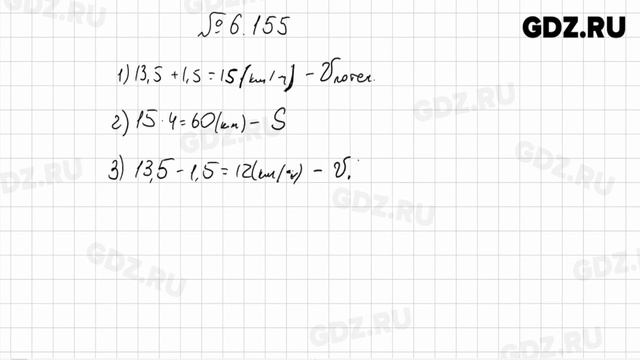 GDZ.RU
№ 6.155
1) 13,5 + 1,5 = 15 (км/ч) - V по теч.
2) 15 · 4 = 60 (км) - S
3) 13,5 - 1,5 = 12 (км/ч) - V.
GDZ.RU
GDZ.RU
GDZ.RU
GDZ.RU
GDZ.RU
GDZ.RU
GDZ.RU
GDZ.RU